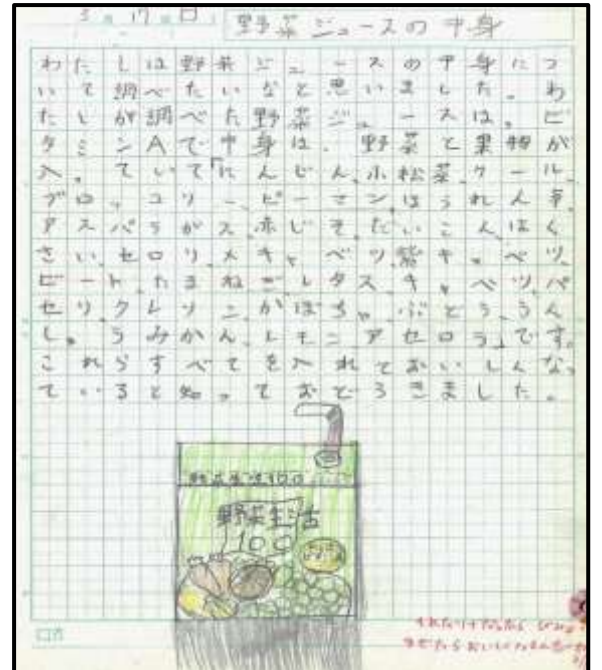 3月17日
野菜ジュースの中身
わたしは野菜ジュースの中身につ
いて調べたいなと思いました。わ
たしが調べた野菜ジュースは、ビ
タミンAで中身は、野菜と果物が
入っていて「にんじん、小松菜、ケール、
ブロッコリー、ピーマン、ほうれん草、
アスパラガス、赤じそ、だいこん、はく
さい、セロリ、メキャベツ、紫キャベツ、
ビート、たまねぎ、レタス、キャベツ、パ
セリ、クレソン、かぼちゃ、ぶどう、
レモン、アセロラ」です。
これらすべてを入れておいしくなっ
ていると知っておどろきました。
野菜生活100
野菜生活
100